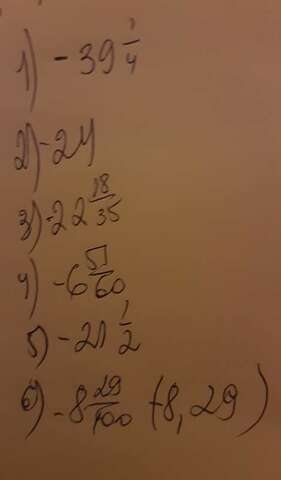 1) -39 1/4
2) -24
3) -22 18/35
4) -6 51/60
5) -21 1/2
6) -8 29/100 (-8,29)